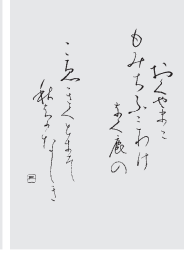 おくやまに
もみちふみわけ
なく鹿の
こゑきくときそ
秋はかなしき